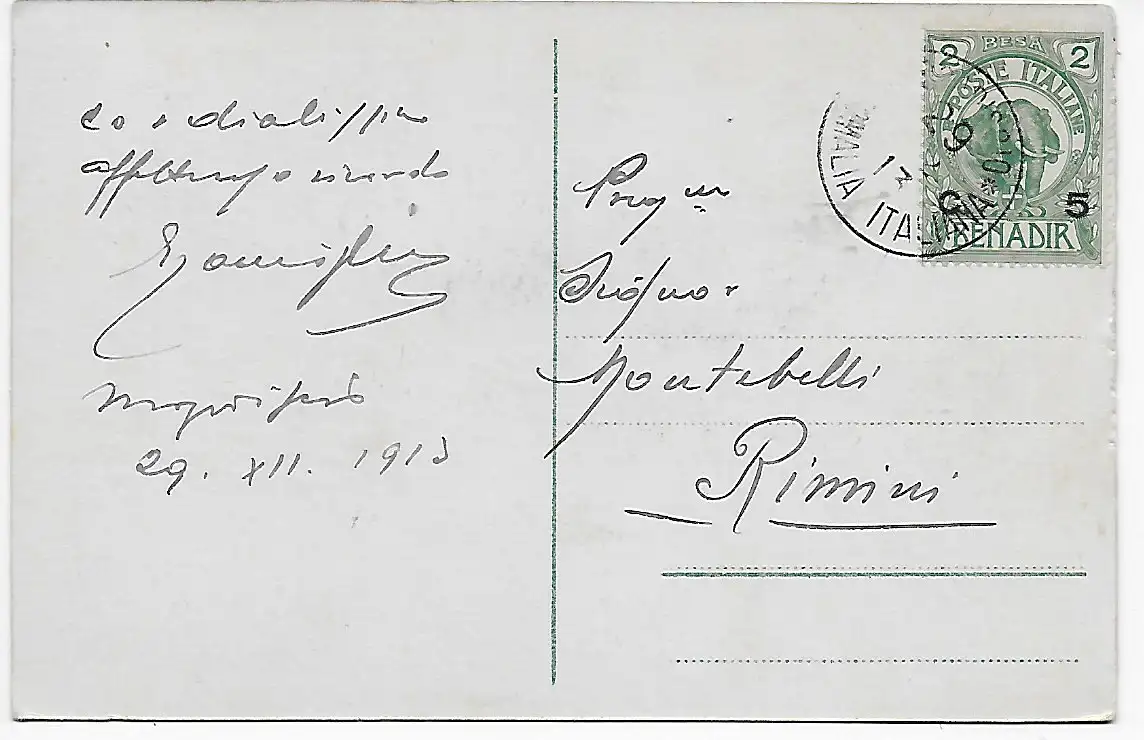 cordialissimo
affettuoso ricordo
Mogadiscio
29. XII. 1913
Preg.mo
Signor
Montebelli
Rimini
2 BESA 2
POSTE ITALIANE
C. 5
BENADIR
MOGADISCIO * SOMALIA ITALIANA *